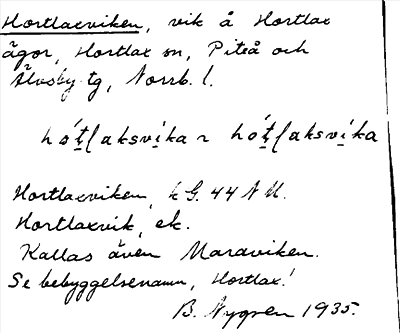 Hortlaxviken, vik å Hortlax
ägor, Hortlax sn, Piteå och
Älvsby tg, Norrb. l.
Hortlaxviken, k G. 44 N M.
Hortlaxvik, ek.
Kallas även Maraviken.
Se bebyggelsenamn, Hortlax!
B. Nygren 1935.